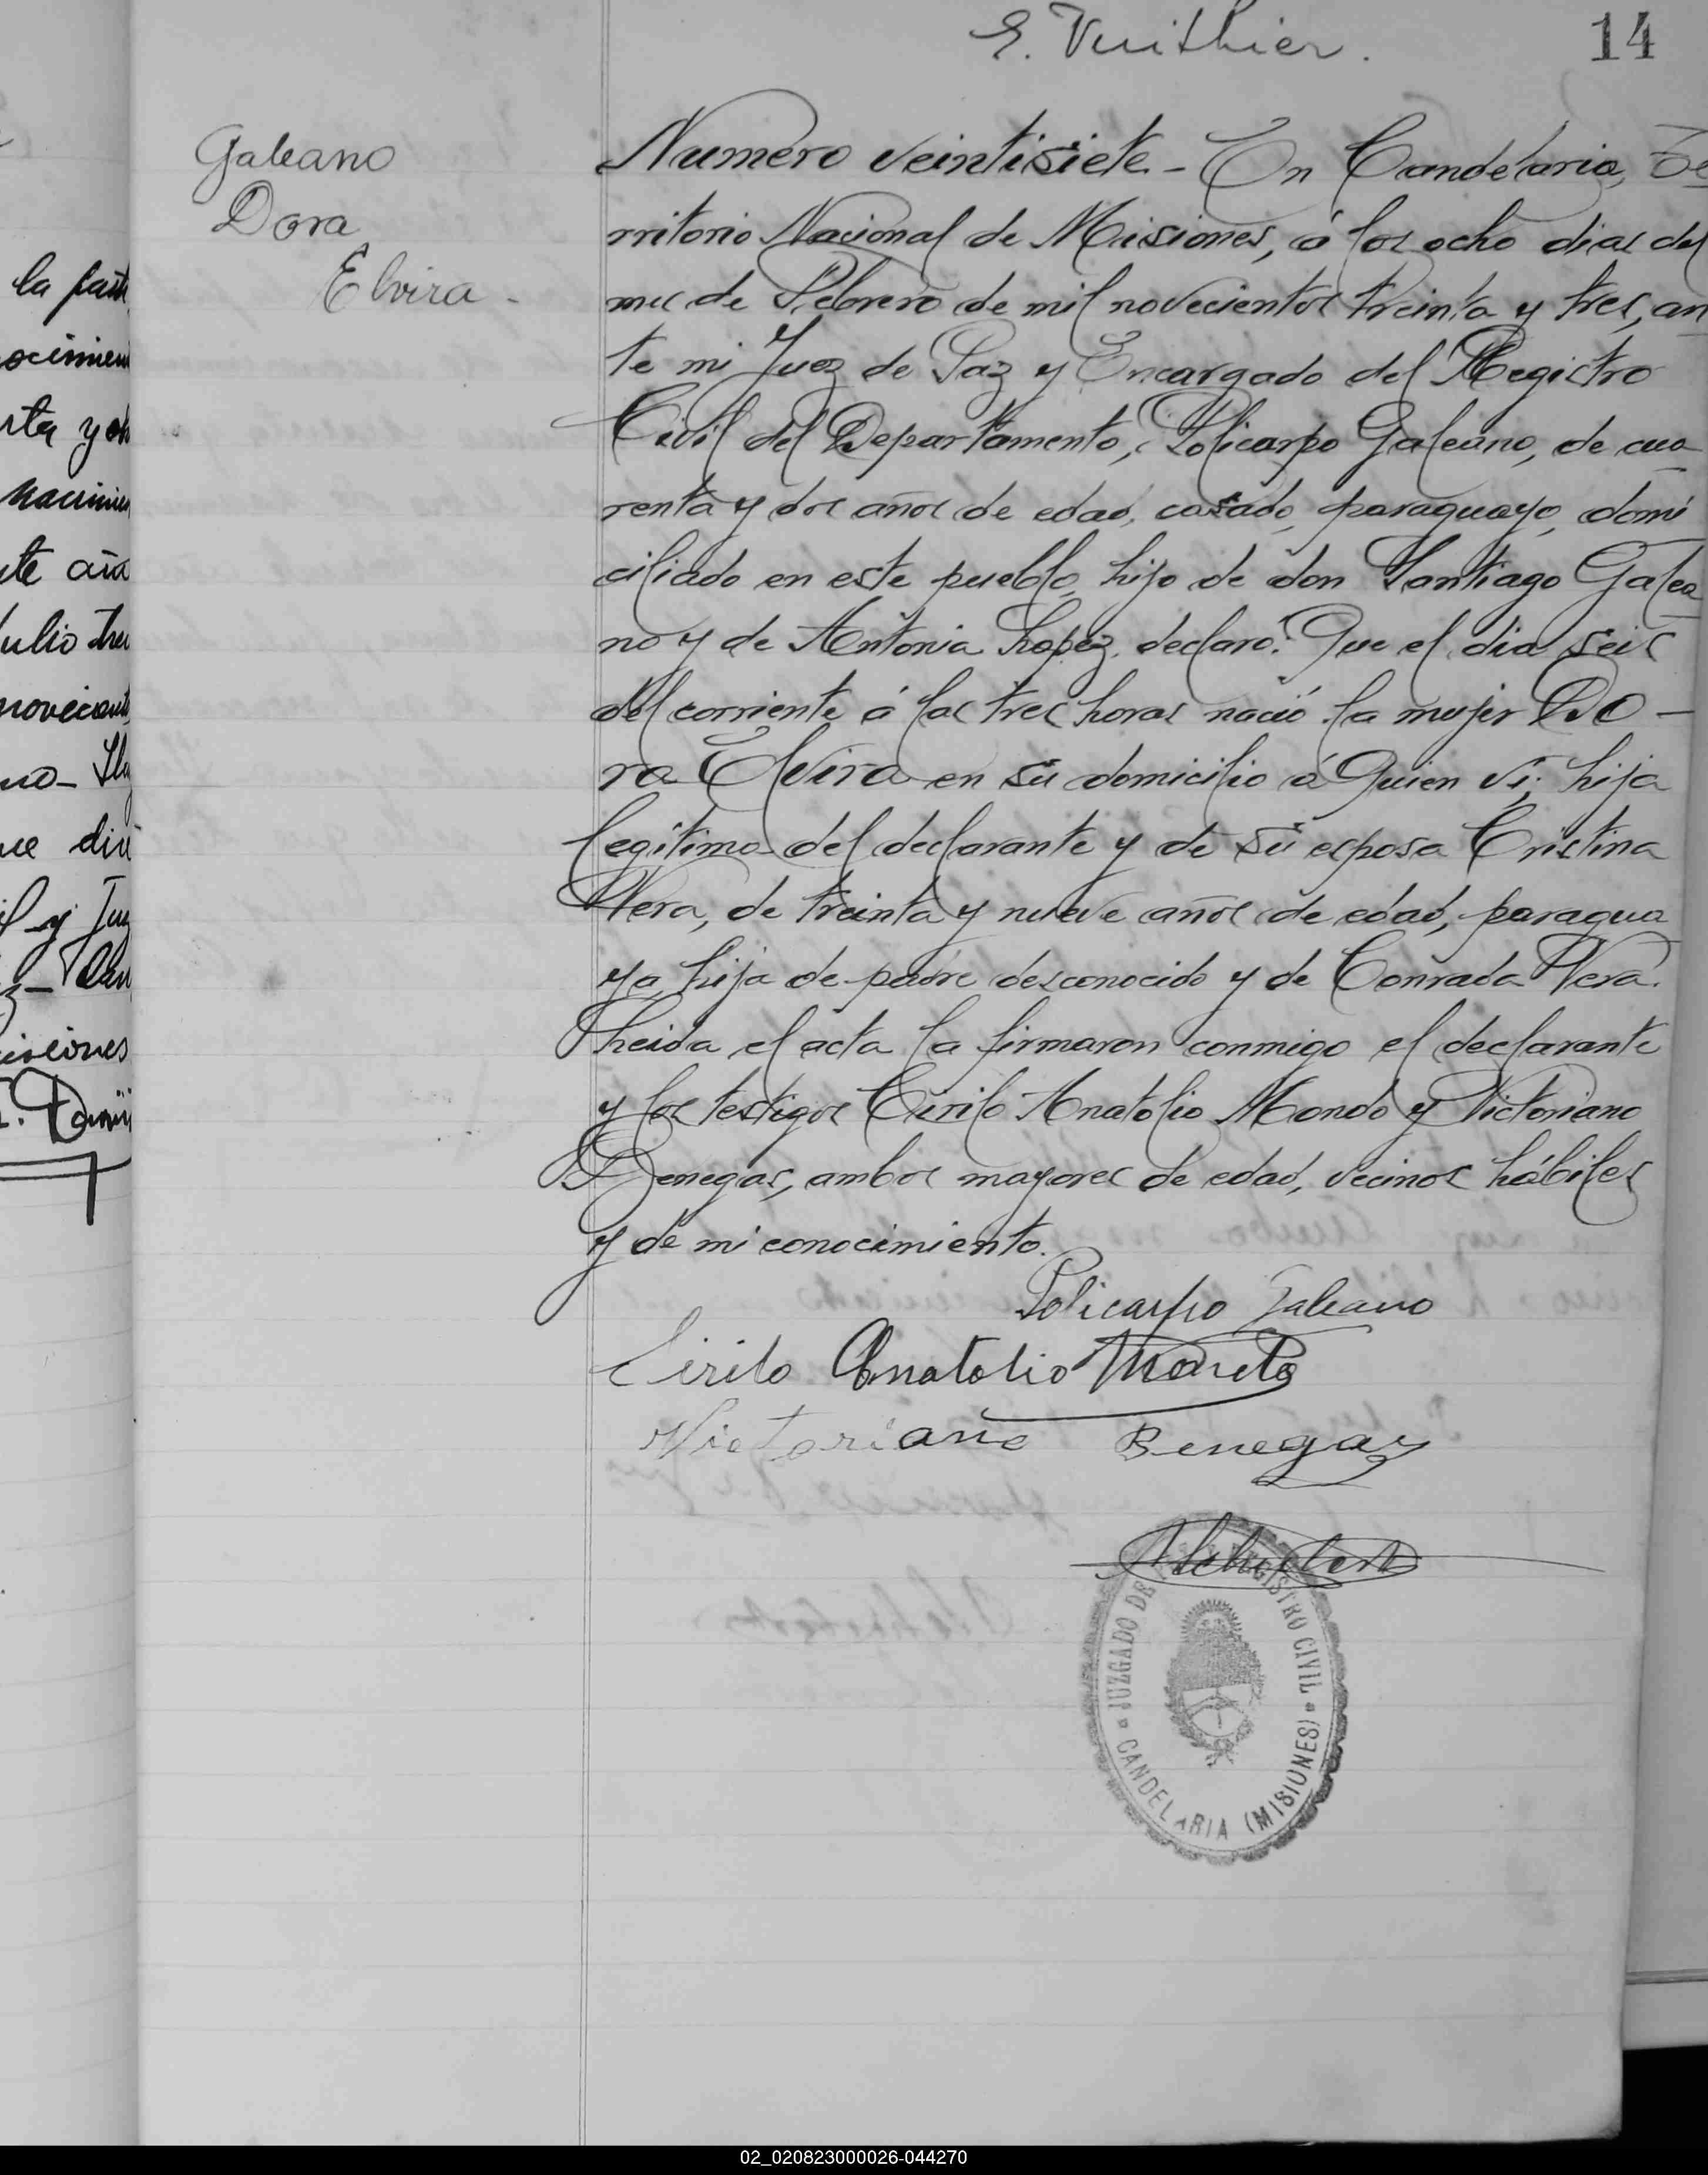 14
Galeano
Dora
Elvira -
Numero veintisiete - En Candelaria, Te
rritorio Nacional de Misiones, á los ocho dias del
mes de Febrero de mil novecientos treinta y tres, an
te mi Juez de Paz y Encargado del Registro
Civil del Departamento, Policarpo Galeano, de cua
renta y dos años de edad, casado, paraguayo, domi
ciliado en este pueblo, hijo de don Santiago Galea
no y de Antonia Lopez, declaró: Que el dia seis
del corriente á las tres horas nació la mujer DO -
ra Elvira en su domicilio á Quien vi; hija
legítima del declarante y de su esposa Cristina
Vera, de treinta y nueve años de edad, paragua
ya, hija de padre desconocido y de Conrada Vera.
Leida el acta la firmaron conmigo el declarante
y los testigos Cirilo Anatolio Mondo y Victoriano
Benegas, ambos mayores de edad, vecinos hábiles
y de mi conocimiento.
Policarpo Galeano
Cirilo Anatolio
Victoriano Benegas
JUZGADO DE REGISTRO CIVIL
CANDELARIA (MISIONES)
la
rta y
Julio
02_020823000026-044270